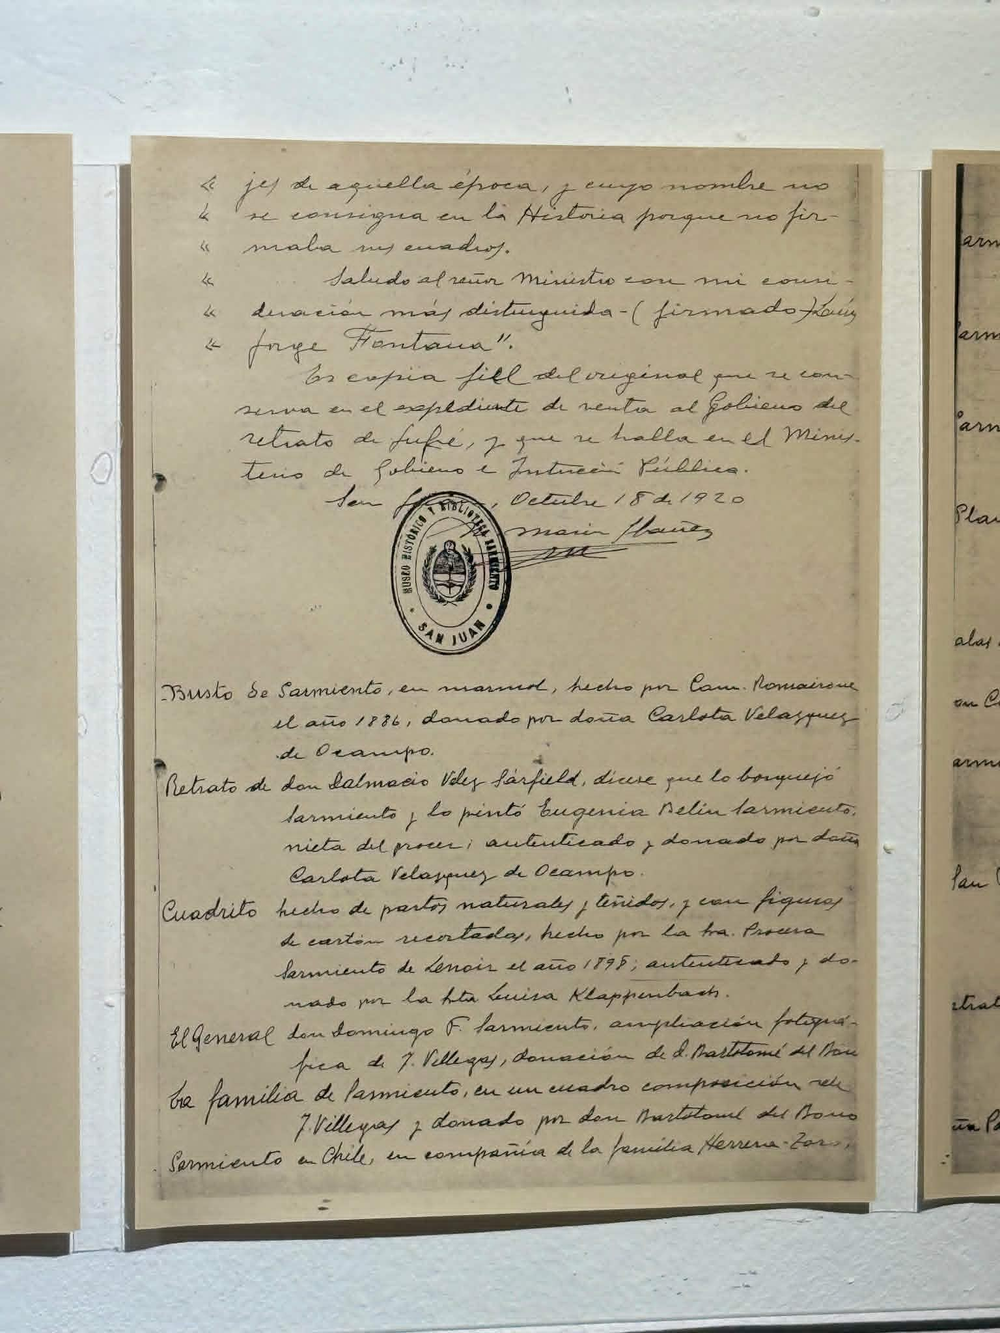 « jes de aquella época, y cuyo nombre no
« se consigna en la Historia porque no fir-
« maba sus cuadros.
« Saludo al señor Ministro con mi consi-
« deración más distinguida - (firmado) Luis
« Jorge Fontana".
Es copia fiel del original que se con-
serva en el expediente de venta al Gobierno del
retrato de Jufré, y que se halla en el Minis-
terio de Gobierno e Pública.
San , Octubre 18 de 1920
Ibañez
MUSEO HISTÓRICO Y BIBLIOTECA SARMIENTO
SAN JUAN
Busto de Sarmiento, en marmol, hecho por Cam. Romairone
el año 1886, donado por doña Carlota Velazquez
de Ocampo.
Retrato de don Dalmacio Velez Sárfield, dícese que lo bosquejó
Sarmiento y lo pintó Eugenia Belin Sarmiento,
nieta del procer; autenticado y donado por doña
Carlota Velazquez de Ocampo.
Cuadrito hecho de pastos naturales y teñidos, y con figuras
de cartón recortadas, hecho por la Sra. Procesa
Sarmiento de Lenoir el año 1898; autenticado y do-
nado por la Srta Luisa Klappenbach.
El General don Domingo F. Sarmiento, ampliación fotográ-
fica de J. Villegas, donación de d. Bartolomé del Bono
La familia de Sarmiento, en un cuadro composición de
J. Villegas y donado por don Bartolomé del Bono
Sarmiento en Chile, en compañía de la familia Herrera-